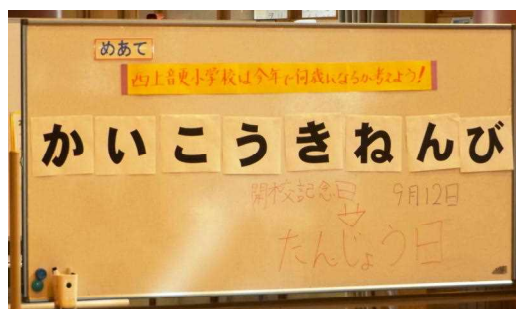 めあて
西上音更小学校は今年で何歳になるか考えよう!
かいこうきねんび
開校記念日 9月12日
たんじょう日